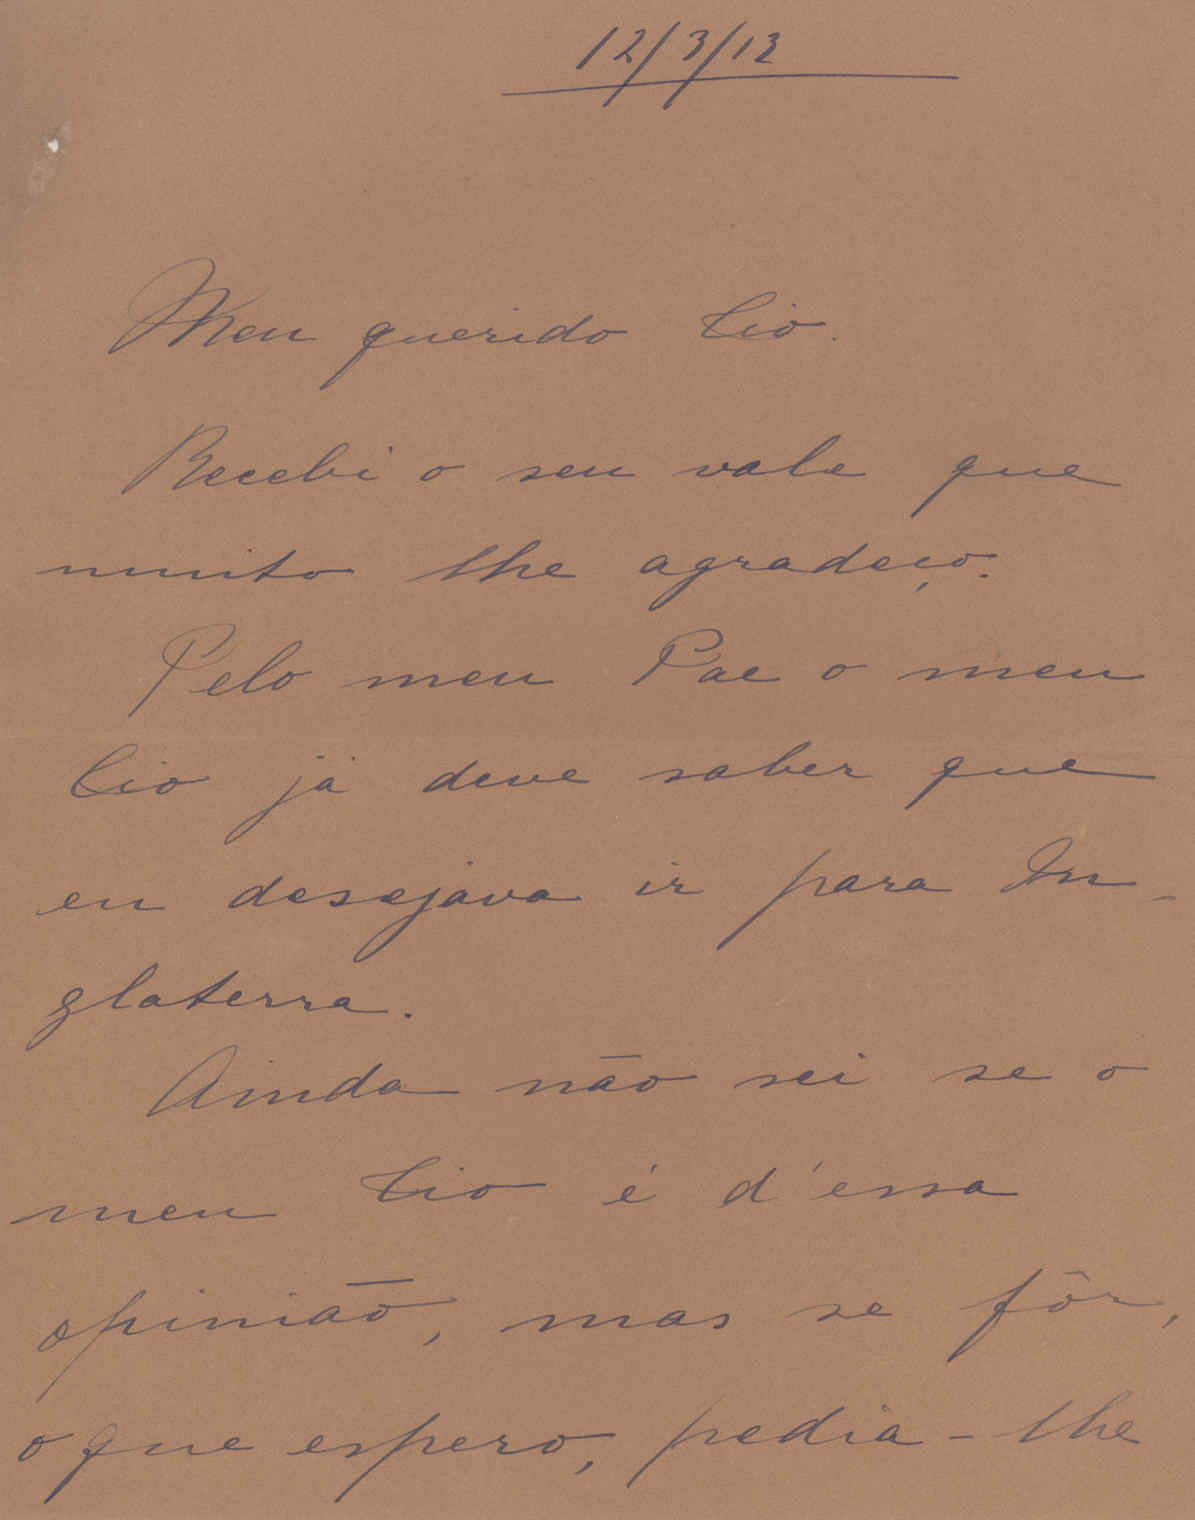 12/3/13
Meu querido tio.
Recebi o seu vale que
muito lhe agradeço.
Pelo meu Pae o meu
tio já deve saber que
eu desejava ir para In-
glaterra.
Ainda não sei se o
meu tio é d'essa
opinião, mas se fôr,
o que espero, pedia-lhe